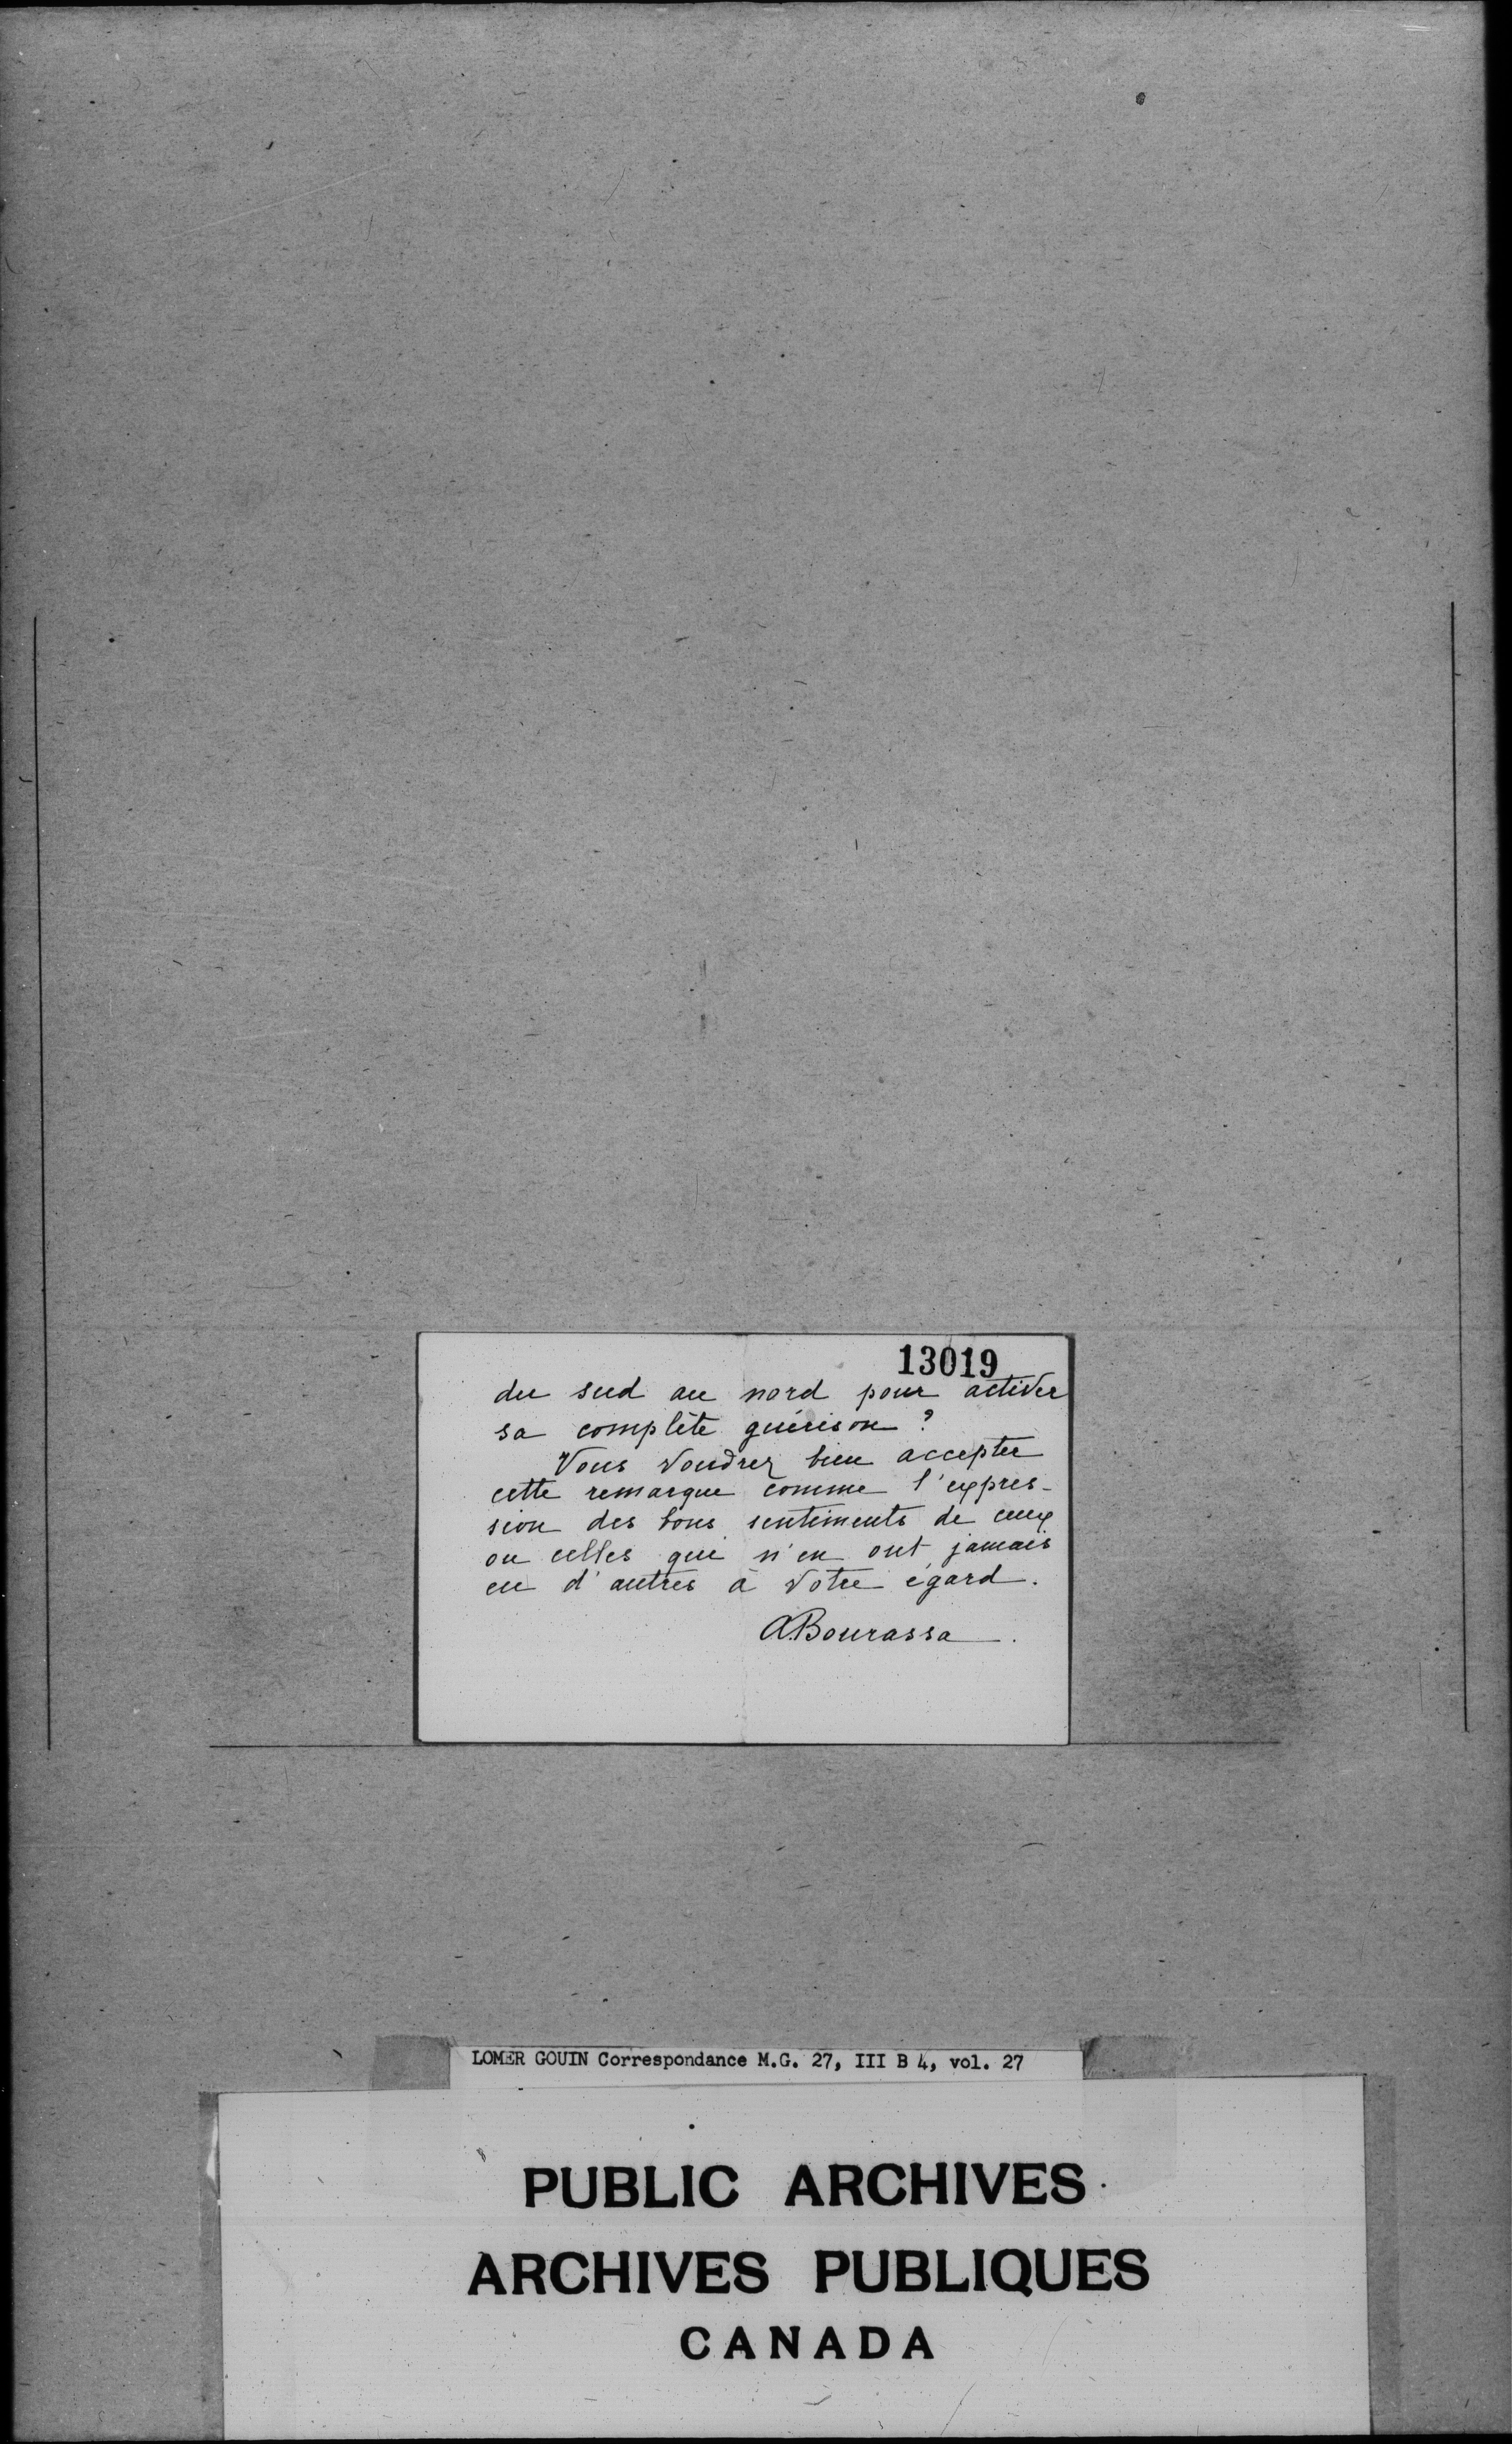 13019
du sud au nord pour activer
sa complète guérison ?
Vous voudrez bien accepter
cette remarque comme l'expres-
sion des bons sentiments de ceux
ou celles qui n'en ont jamais
eu d'autres à votre égard.
A.Bourassa.
LOMER GOUIN Correspondance M.G. 27, III B 4, vol. 27
PUBLIC ARCHIVES
ARCHIVES PUBLIQUES
CANADA